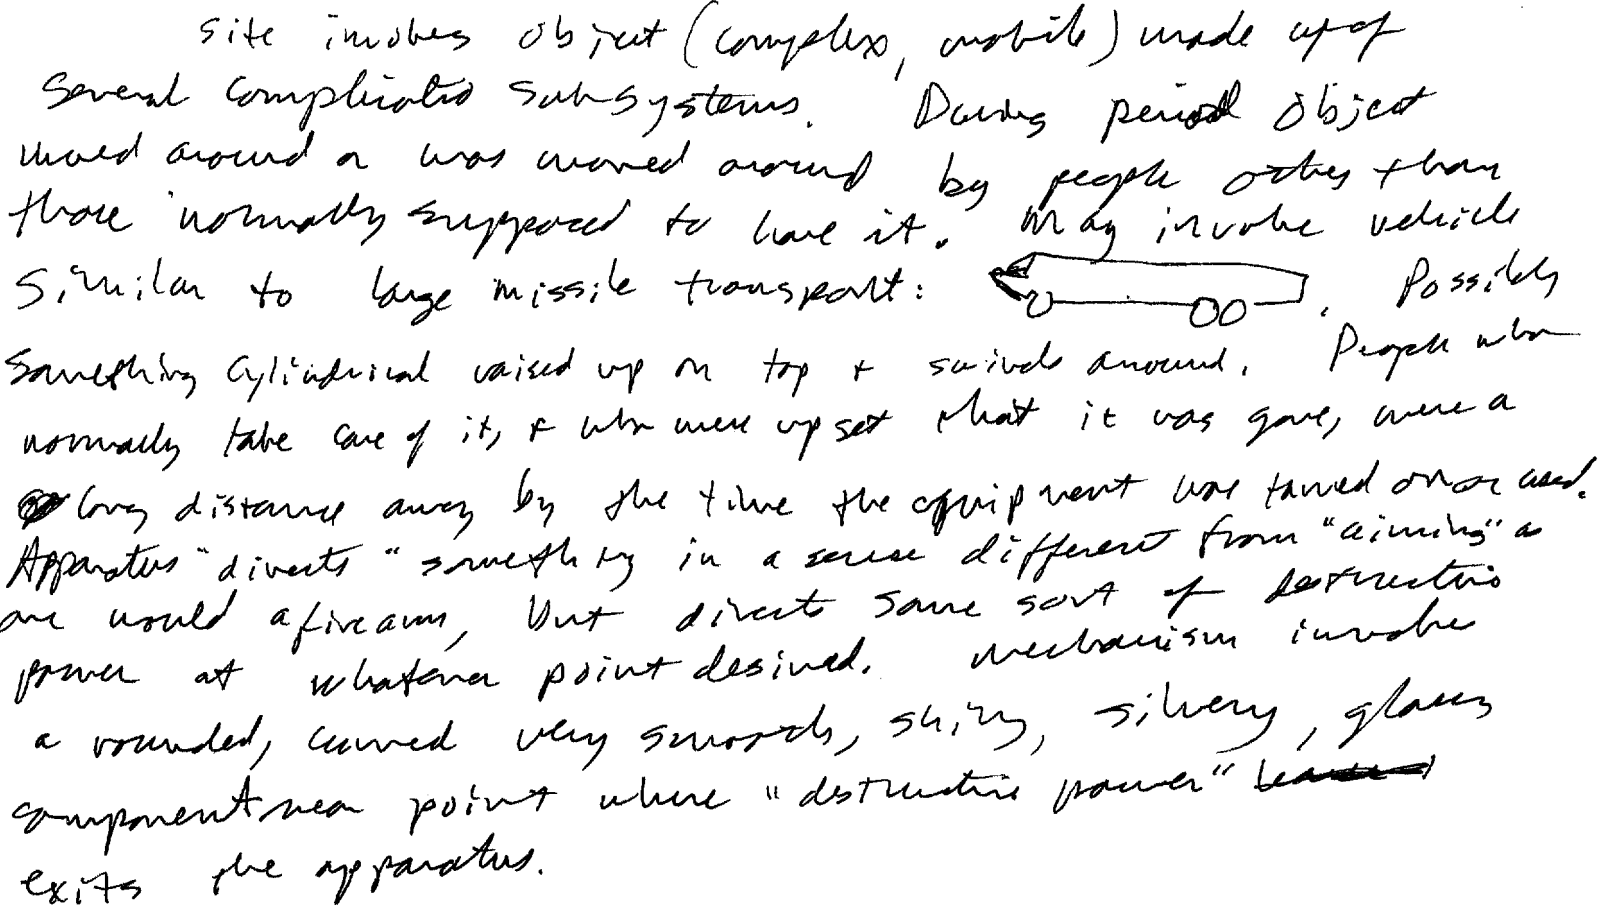 Site involves object (complex, mobile) made up of
several complicated subsystems. During period object
moved around or was moved around by people other than
those normally supposed to have it. May involve vehicle
similar to large missile transport: . Possibly
something cylindrical raised up on top + swivels around. People who
normally take care of it, + who were upset that it was gone, were a
long distance away by the time the equipment was turned on or used.
Apparatus "directs" something in a sense different from "aiming" as
one would a firearm, but directs some sort of destructive
power at whatever point desired. Mechanism involve
a rounded, curved very smooth, shiny, silvery, glassy
component near point where "destructive power"
exits the apparatus.